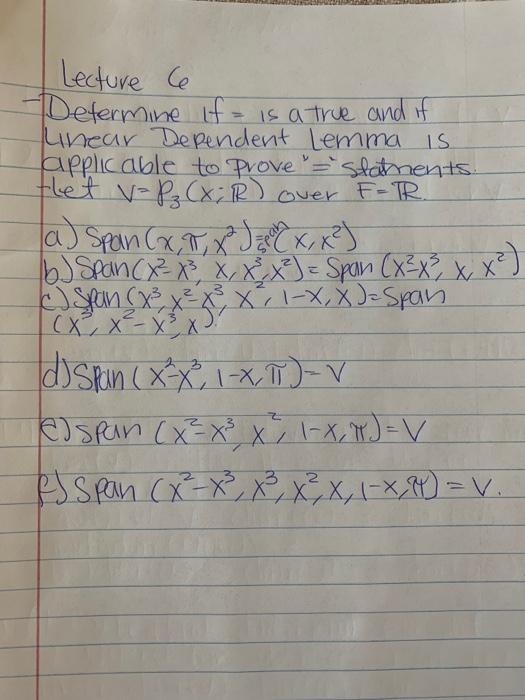 Lecture 6
- Determine if = is a true and if
Linear Dependent Lemma is
applicable to prove "=" statments.
- Let V = P₃(x; ℝ) over F = ℝ.
a) Span(x, π, x²) = span(x, x²)
b) Span(x² - x³, x, x³, x²) = Span(x² - x³, x, x²)
c) Span(x³, x² - x³, x², 1 - x, x) = Span
(x³, x² - x³, x).
d) Span(x² - x³, 1 - x, π) = V
e) Span(x² - x³, x², 1 - x, π) = V
f) Span(x² - x³, x³, x², x, 1 - x, π) = V.